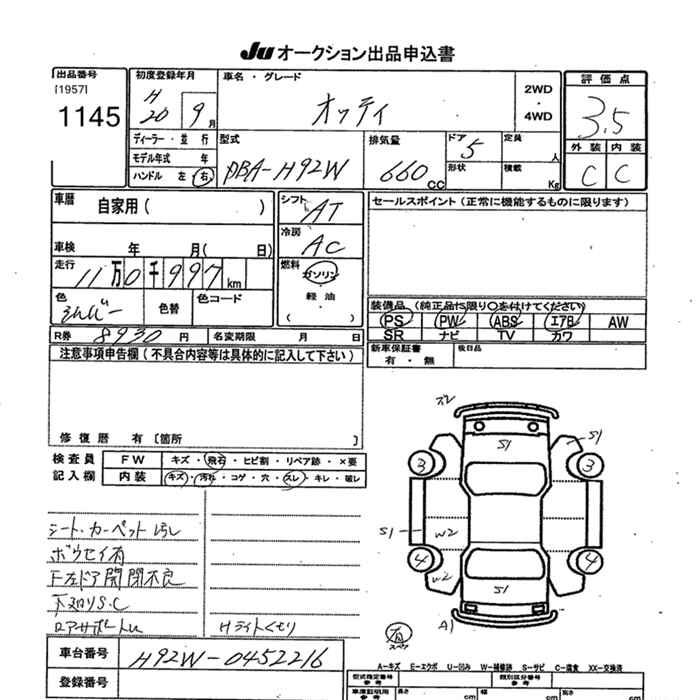 Ju オークション出品申込書
出品番号
[1957]
1145
初度登録年月
H 20 9月
車名・グレード
オッティ
2WD
・
4WD
評価点
3.5
外装 内装
C C
ディーラー・並行
モデル年式 年
ハンドル 左・右
型式
DBA-H92W
排気量
660 cc
ドア 5
形状
定員 人
積載 Kg
車歴 自家用( )
車検 年 月( 日)
走行 11万0千997km
色
色替
色コード
シフト AT
冷房 AC
燃料
ガソリン
・
軽油
・
( )
セールスポイント(正常に機能するものに限ります)
装備品(純正品に限り○を付けてください)
PS PW ABS エアB AW
SR ナビ TV カワ
新車保証書
有・無
後日品
R券 8930円
名変期限 月 日
注意事項申告欄(不具合内容等は具体的に記入して下さい)
修復歴 有 [箇所 ]
検査員 FW キズ・飛石・ヒビ割・リペア跡・×要
記入欄 内装 キズ・汚れ・コゲ・穴・スレ・キレ・破レ
シート・カーペット汚レ
ボウセイ有
左ドア開閉不良
下廻りS.C
Hライトくもり
S1
S1
3
3
S1
W2
4
4
W2
S1
A1
車台番号 H92W-0452216
登録番号
A-キズ E-エクボ U-凹み W-補修跡 S-サビ C-腐食 XX-交換済
型式指定番号
参考
類別区分番号
参考
車庫証明用
参考
長さ cm
幅 cm
高さ cm